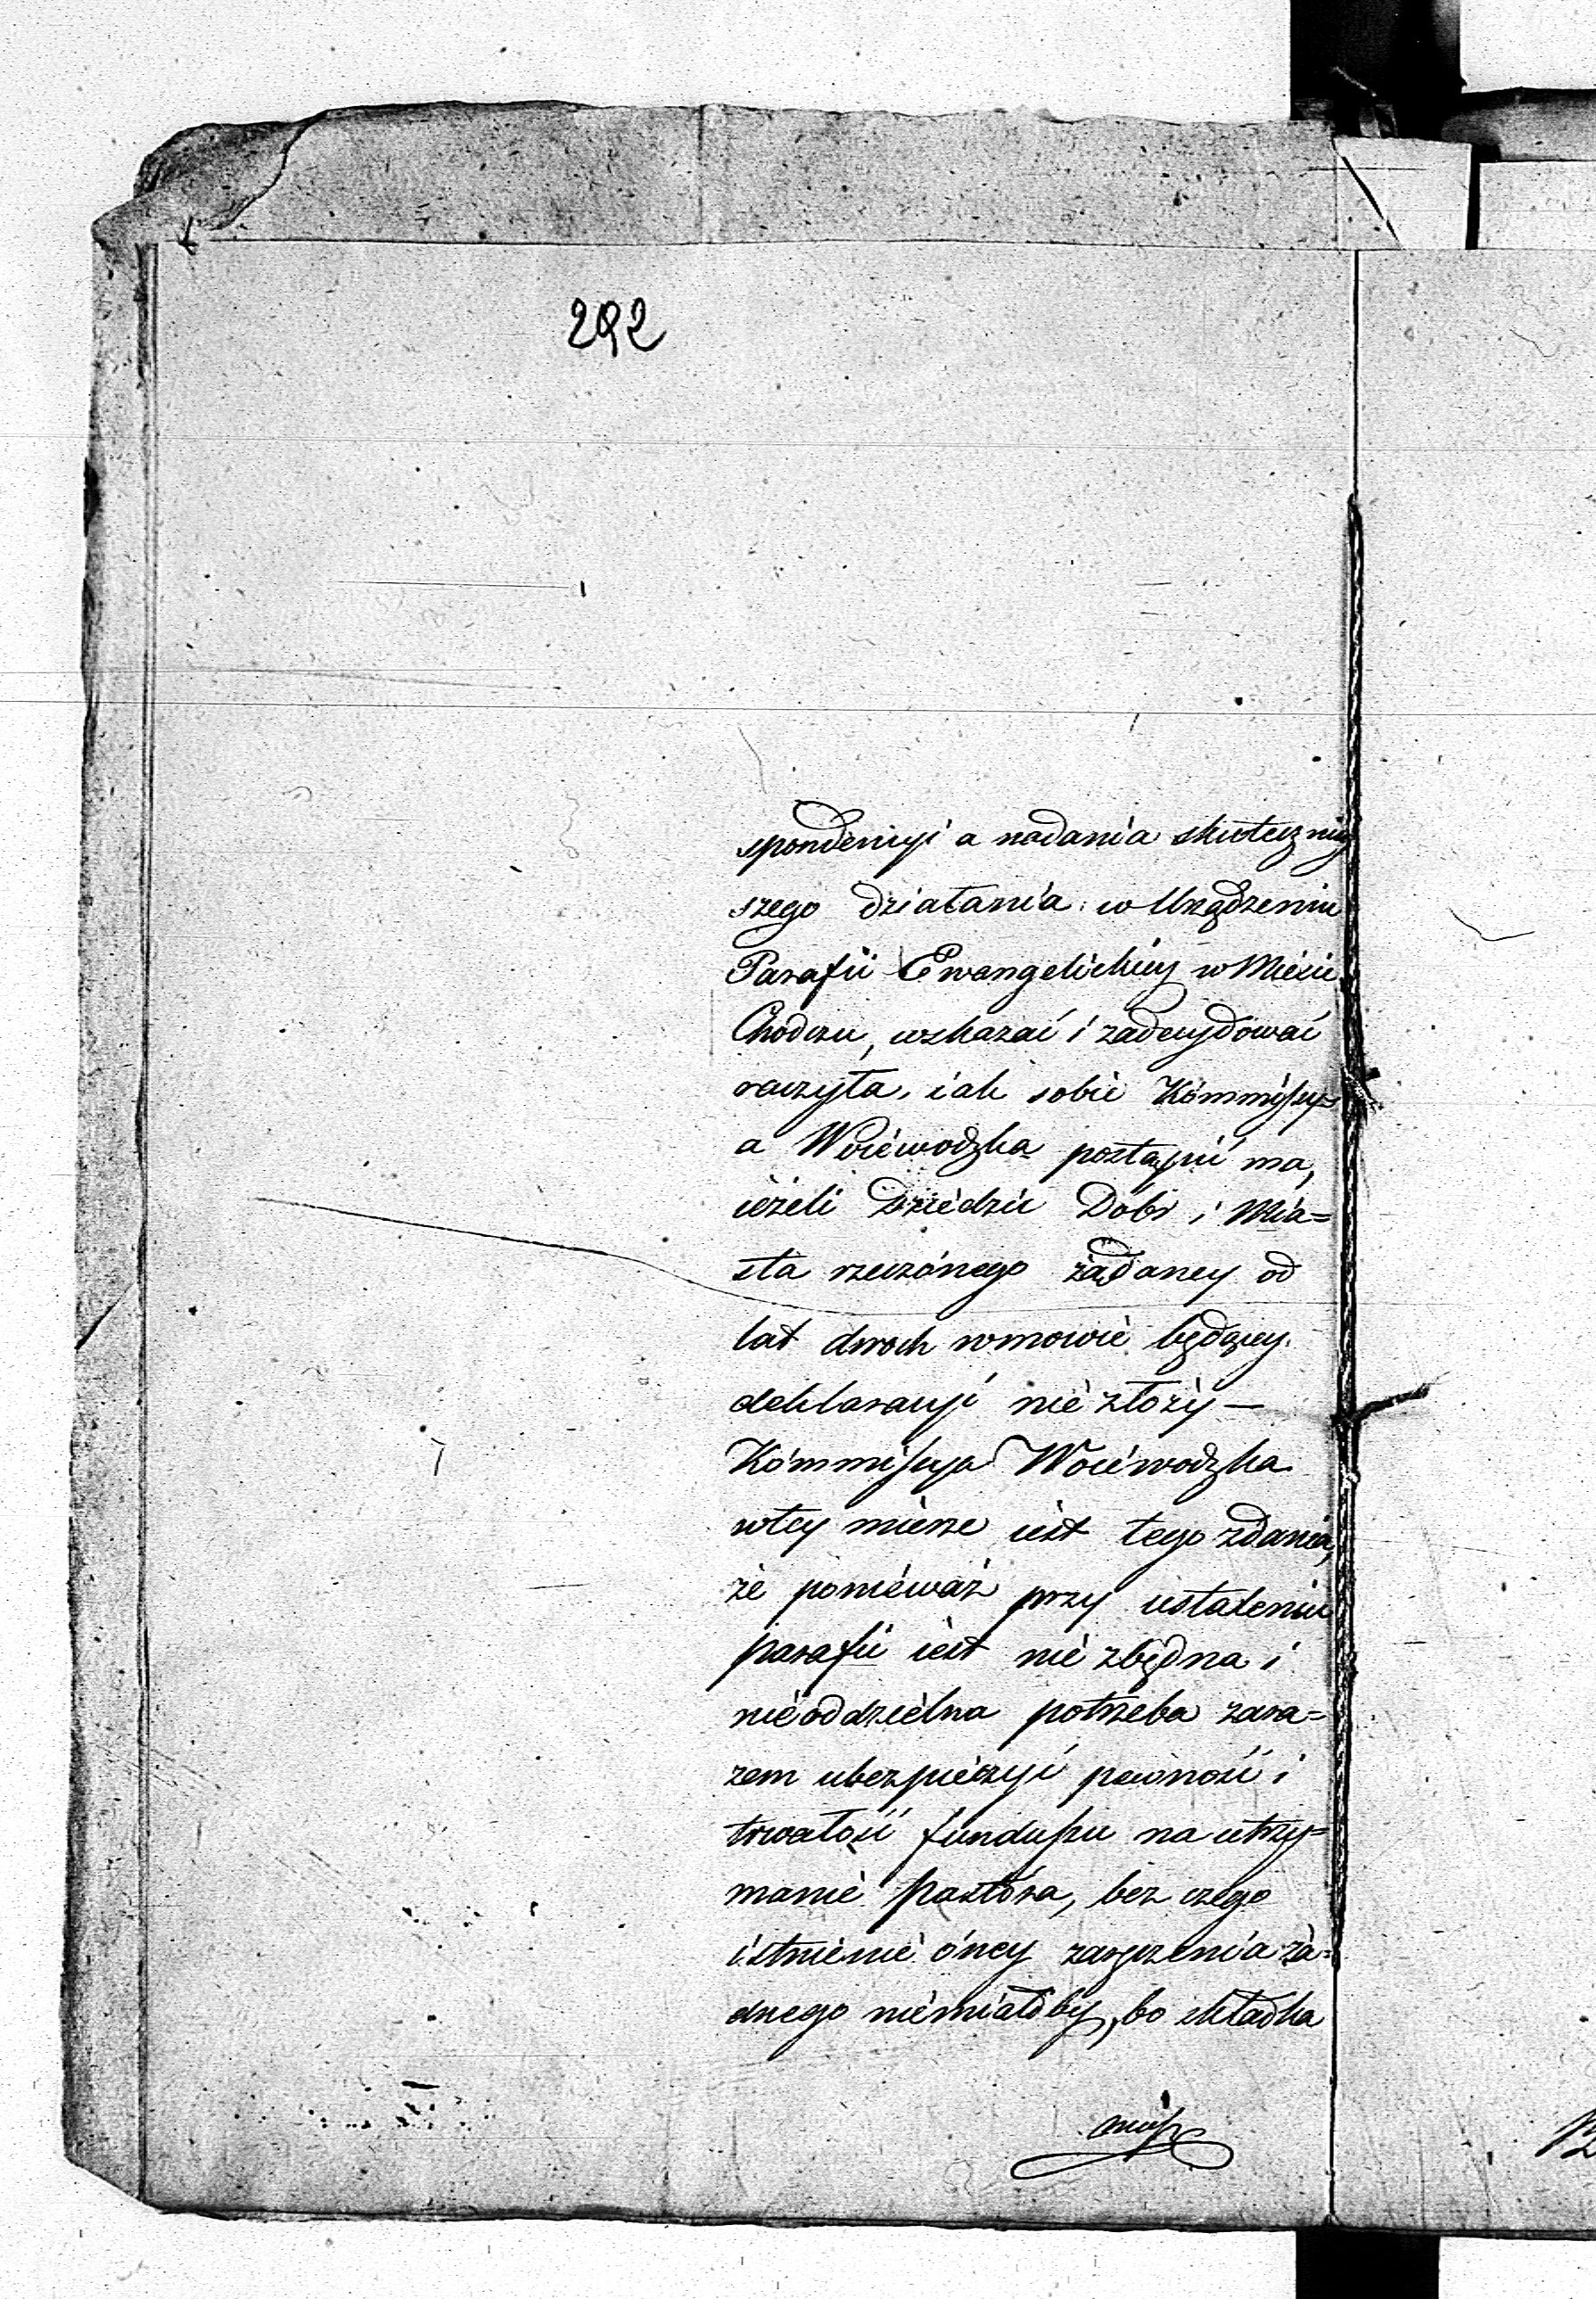 292
spondencyi a nadania skuteczniey
szego działania w Urządzeniu
Parafii Ewangelickiey w Mieście
Chodczu, wskazać i zadecydować
raczyła, iak sobie Kommissy=
a Woiewodzka postąpić ma,
ieżeli Dziedzic Dóbr i Mia=
sta rzeczonego żądaney od
lat dwoch wmowie będącey
deklaracyi nie złoży —
Kommissya Woiewodzka
wtey mierze iest tego zdania,
że ponieważ przy ustaleniu
parafii iest nie zbędna i
nieoddzielna potrzeba zara=
zem ubezpieczyć pewność i
trwałość funduszu na utrzy=
manie Pastora, bez czego
istnienie oney zaręczenia ża=
dnego niemiałoby, bo składka